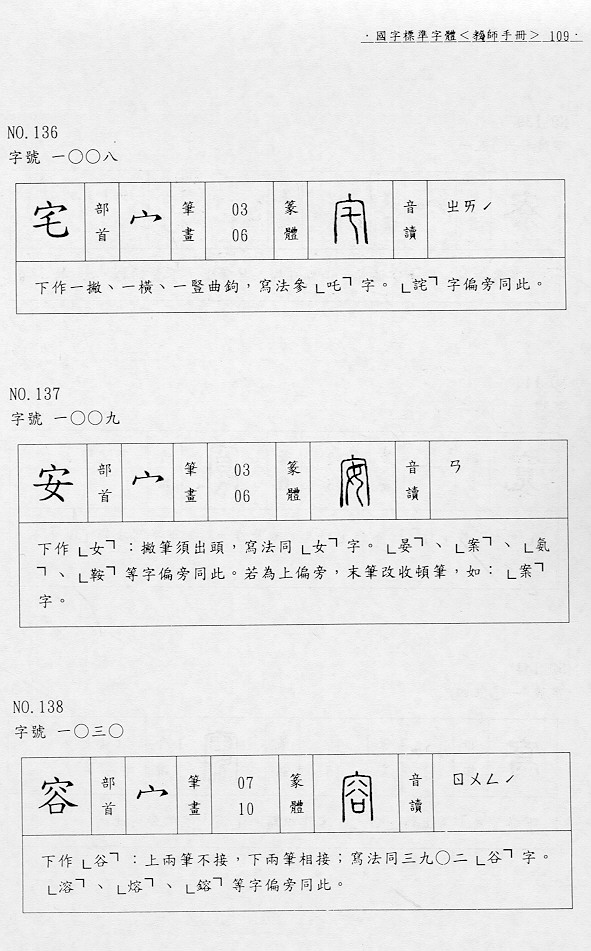 ·國字標準字體＜教師手冊＞ 109·
NO.136
字號 一〇〇八
宅 部首 宀 筆畫 03 06 篆體 宅 音讀 ㄓㄞˊ
下作一撇、一橫、一豎曲鉤，寫法參「吒」字。「詫」字偏旁同此。
NO.137
字號 一〇〇九
安 部首 宀 筆畫 03 06 篆體 安 音讀 ㄢ
下作「女」：撇筆須出頭，寫法同「女」字。「晏」、「案」、「氨
」、「鞍」等字偏旁同此。若為上偏旁，末筆改收頓筆，如：「案」
字。
NO.138
字號 一〇三〇
容 部首 宀 筆畫 07 10 篆體 容 音讀 ㄖㄨㄥˊ
下作「谷」：上兩筆不接，下兩筆相接；寫法同三九〇二「谷」字。
「溶」、「熔」、「鎔」等字偏旁同此。